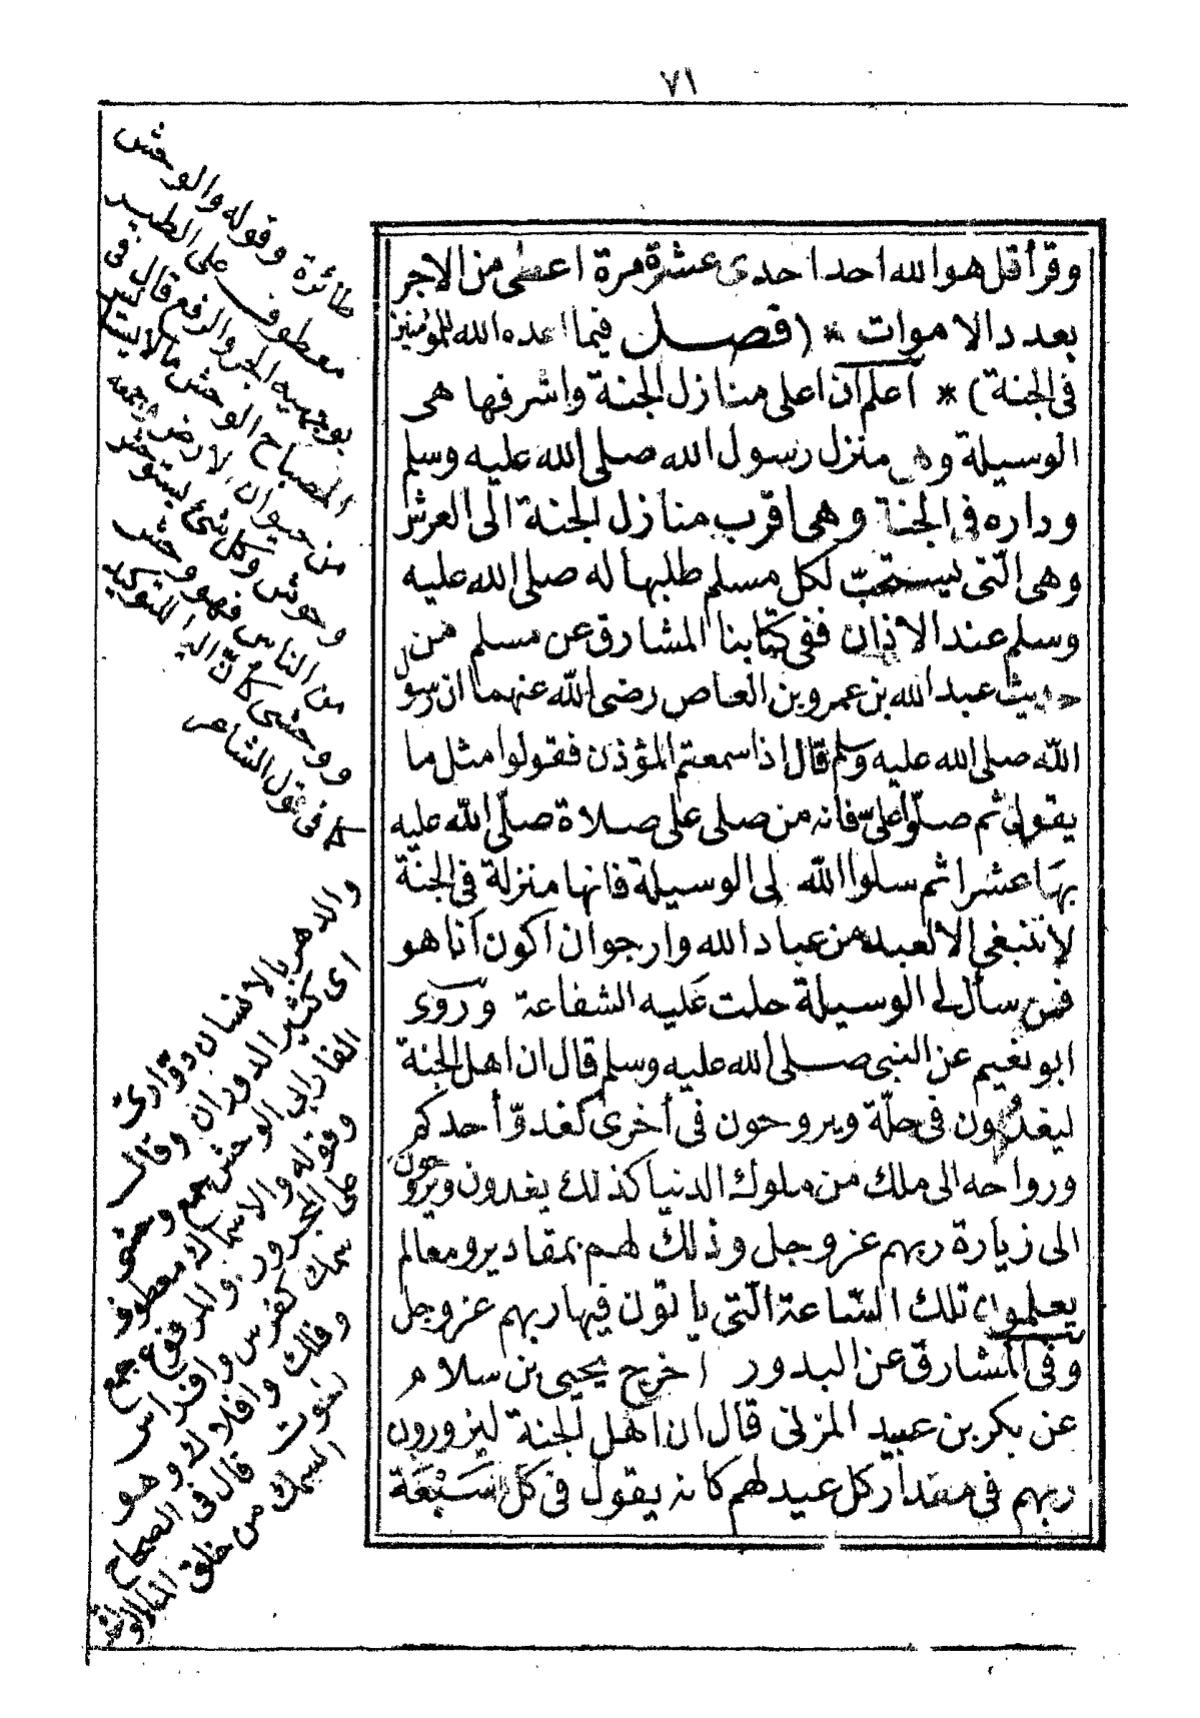 ٧١
وقرأ قل هو الله احد احدى عشرة مرة اعطى من الاجر
بعدد الاموات * (فصل فيما اعده الله للمؤمنين
فى الجنة) * اعلم ان اعلى منازل الجنة واشرفها هى
الوسيلة وهى منزل رسول الله صلى الله عليه وسلم
وداره فى الجنة وهى اقرب منازل الجنة الى العرش
وهى التى يستحبّ لكل مسلم طلبها له صلى الله عليه
وسلم عند الاذان ففى كتابنا المشارق عن مسلم من
حديث عبد الله بن عمرو بن العاص رضى الله عنهما ان رسول
الله صلى الله عليه وسلم قال اذا سمعتم المؤذن فقولوا مثل ما
يقول ثم صلّوا علىّ فانه من صلى على صلاة صلّى الله عليه
بها عشرا ثم سلوا الله لى الوسيلة فانها منزلة فى الجنة
لا تنبغى الا لعبد من عباد الله وارجوان اكون انا هو
فمن سأل لى الوسيلة حلت عليه الشفاعة وروى
ابو نعيم عن النبى صلى الله عليه وسلم قال ان اهل الجنة
ليغدون فى حلّة ويروحون فى أخرى كغدوّ أحدكم
ورواحه الى ملك من ملوك الدنيا كذلك يغدون ويروحون
الى زيارة ربهم عز وجل وذلك لهم بمقادير ومعالم
يعلمون تلك السّاعة التى يأتون فيها ربهم عز وجل
وفى المشارق عن البدور اخرج يحيى بن سلام
عن بكر بن عبيد المزنى قال ان اهل الجنة ليزورون
ربهم فى مقدار كل عيد لهم كانه يقول فى كل سَبْعَة
طائرة وقوله والوحش
معطوف على الطير
بوجهيه الجر والرفع قال فى
المصباح الوحش ما لا يستانس
من حيوان الارض وجمعه
وحوش وكل شئ يستوحش
من الناس فهو وحش
ووحشى كأنّ اليا للتوكيد
كما فى قول الشاعر
والدهر بالانسان دوّارىّ
اى كثير الدوران وقال
الفارابى الوحش جمع وحشى
وقوله والاسماك معطوف
على المجرور والمرفوع جمع
سمك كفرس وافراس
وفلك وافلاك وهو
الحوت قال فى الصحاح
السمك من خلق الماء الواحدة